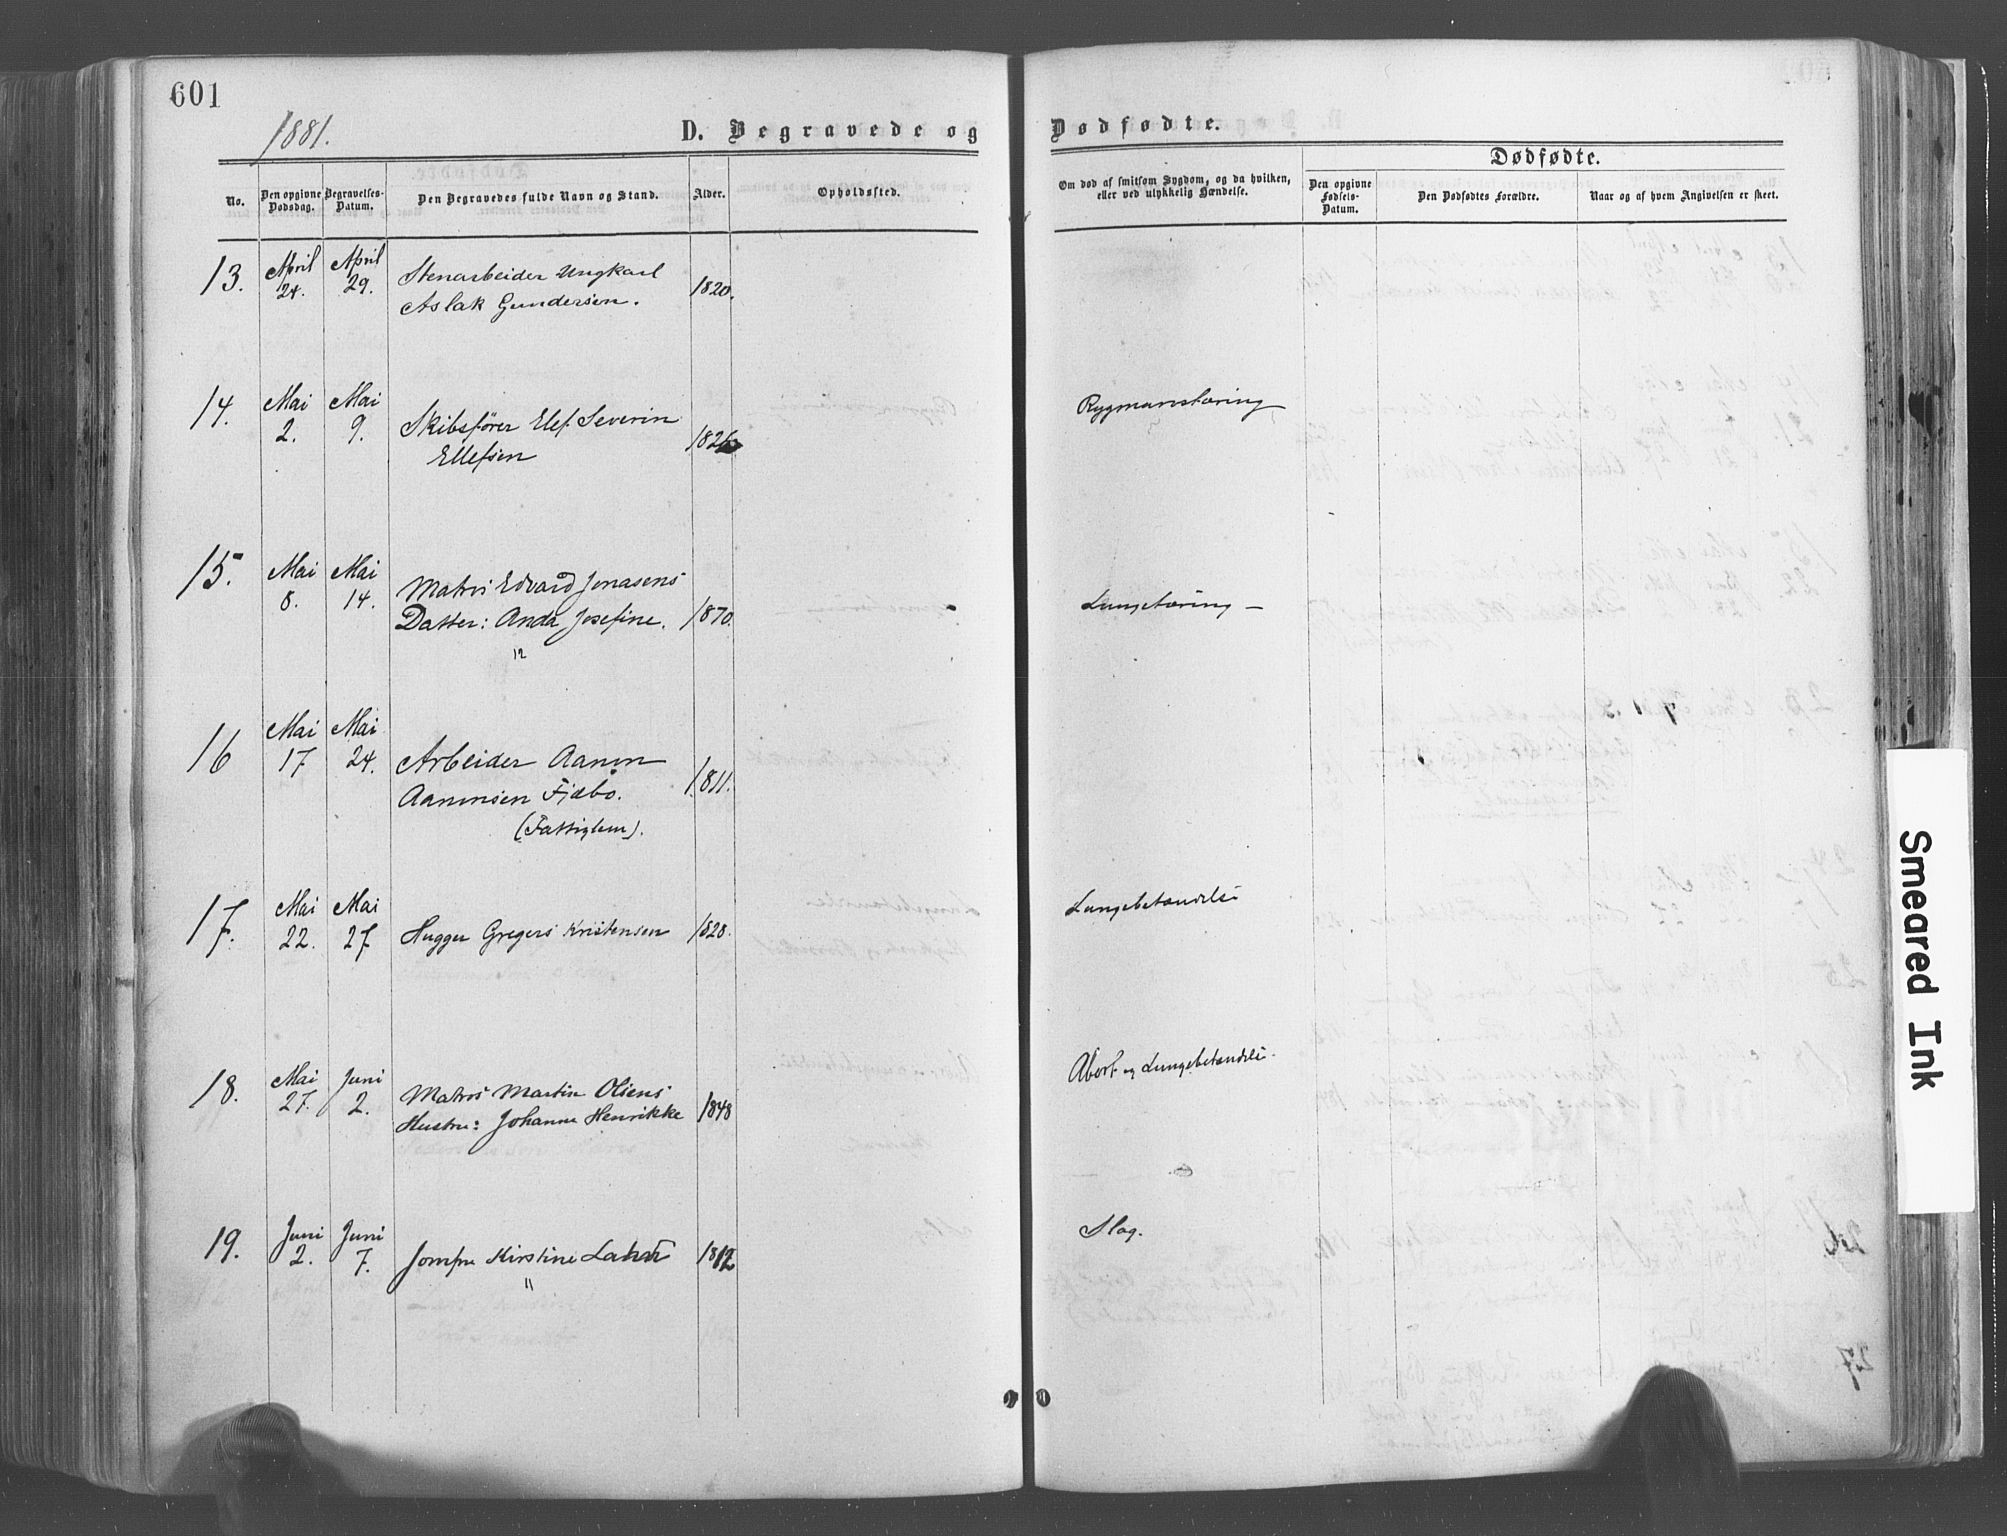 601
1881.
D. Begravede og Dødfødte.
Dødfødte.
No.
Den opgivne Dødsdag.
Begravelses-Datum.
Den Begravedes fulde Navn og Stand.
Alder.
Opholdssted.
Om død af smitsom Sygdom, og da hvilken,
eller ved ulykkelig Hændelse.
Den opgivne Fødsels-Datum.
Den Dødfødtes Forældre.
Naar og af hvem Angivelsen er skeet.
13. April 24. April 29. Stenarbeider Ungkarl 1820.
Aslak Gundersen.
14. Mai 2. Mai 9. Skibsfører Elef Severin Rygmarvstæring
Ellefsen
15. Mai 8. Mai 14. Matros Edvard Jonasens 1870. Lungetæring –
Datter: Anda Josefine.
12
16 Mai 17 Mai 24. Arbeider Aanon 1811.
Aanonsen Fjæbo.
(Fattiglem).
17. Mai 22. Mai 27 Hugger Gregers Kristensen 1828. Lungebetændelse
18. Mai 27. Juni 2. Matros Martin Olsens 1848 Abort og Lungebetændelse.
Hustru: Johanne Henrikke
19. Juni 2. Juni 7. Jomfru Kirstine 1812 Slag.
11
Smeared Ink